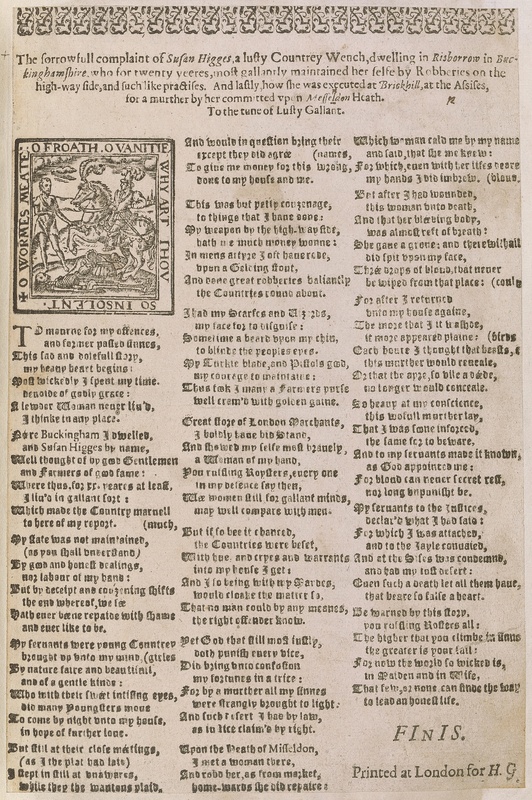 The sorrowfull complaint of Susan Higges, a lusty Countrey Wench, dwelling in Risborrow in Buc-
kinghamshire, who for twenty yeeres, most gallantly maintained her selfe by Robberies on the
high-way side, and such like practises. And lastly, how she was executed at Brickhill, at the Assises,
for a murther by her committed vpon Messeldon Heath.
To the tune of Lusty Gallant.
O FROATH. O VANITIE
WHY ART THOV
SO INSOLENT.
O WORMES MEATE:
TO mourne for my offences,
and former passed sinnes,
This sad and dolefull story,
my heauy heart begins:
Most wickedly I spent my time.
deuoide of godly grace:
A lewder Woman neuer liu'd,
I thinke in any place.
Neere Buckingham I dwelled,
and Susan Higges by name,
Well thought of by good Gentlemen
and Farmers of good fame:
Where thus, for xx. yeares at least,
I liu'd in gallant sort:
Which made the Country maruell
to here of my report. (much,
My state was not maintained,
(as you shall vnderstand)
By good and honest dealings,
nor labour of my hand:
But by deceipt and couzening shifts
the end whereof, we see
Hath euer beene repaide with shame
and euer like to be.
My seruants were young Countrey
brought vp vnto my mind, (girles
By nature faire and beautifull,
and of a gentle kinde:
Who with their sweet intising eyes,
did many Youngsters moue
To come by night vnto my house,
in hope of further loue.
But still at their close meetings,
(as I the plat had late)
I stept in still at vnawares,
while they the wantons plaid.
And would in question bring their
except they did agree (names,
To giue me money for this wrong,
done to my house and me.
This was but petty couzenage,
to things that I haue done:
My weapon by the high-way side,
hath me much money wonne:
In mens attyre I oft haue rode,
vpon a Gelding stout,
And done great robberies valiantly
the Countries round about.
I had my Scarfes and Vizards,
my face for to disguise:
Sometime a beard vpon my chin,
to blinde the peoples eyes.
My Turkie blade, and Pistols good,
my courage to maintaine:
Thus took I many a Farmers purse
well cram'd with golden gaine.
Great store of London Merchants,
I boldly haue bid stand,
And showed my selfe most brauely,
a Woman of my hand,
You ruffling Roysters, euery one
in my defence say then,
Wee women still for gallant minds,
may well compare with men.
But if so bee it chanced,
the Countries were beset,
With hue and cryes and warrants
into my house I get:
And I so being with my Mardes,
would cloake the matter so,
That no man could by any meanes,
the right offender know.
Yet God that still most iustly,
doth punish euery vice,
Did bring vnto confusion
my fortunes in a trice:
For by a murther all my sinnes
were strangly brought to light:
And such desert I had by law,
as iustice claim'd by right.
Vpon the Heath of Misseldon,
I met a woman there,
And robd her, as from market,
home-wards she did repaire:
Which woman cald me by my name
and said, that she me knew:
For which, euen with her lifes deare
my hands I did imbrew. (bloud,
But after I had wounded,
this woman vnto death,
And that her bleeding body,
was almost reft of breath:
She gaue a grone: and therewithall
did spit vpon my face,
Three drops of bloud, that neuer
be wiped from that place: (could
For after I returned
vnto my house againe,
The more that I it washt,
it more appeared plaine: (birds
Each houre I thought that beasts, &
this murther would reueale,
Or that the ayre, so vile a deede,
no longer would conceale.
So heauy at my conscience,
this wofull murther lay,
That I was soone inforced,
the same for to bewray.
And to my seruants made it known,
as God appointed me:
For blood can neuer secret rest,
nor long vnpunisht be.
My seruants to the Iustices,
declar'd what I had said:
For which I was attached,
and to the Iayle conuaied,
And at the Sises was condemnd,
and had my iust desert:
Euen such a death let all them haue,
that beare so false a heart.
Be warned by this story,
you ruffling Roisters all:
The higher that you climbe in sinne
the greater is your fall:
For now the world so wicked is,
in Maiden and in Wife,
That few, or none, can finde the way
to lead an honest life.
FINIS.
Printed at London for H. G.